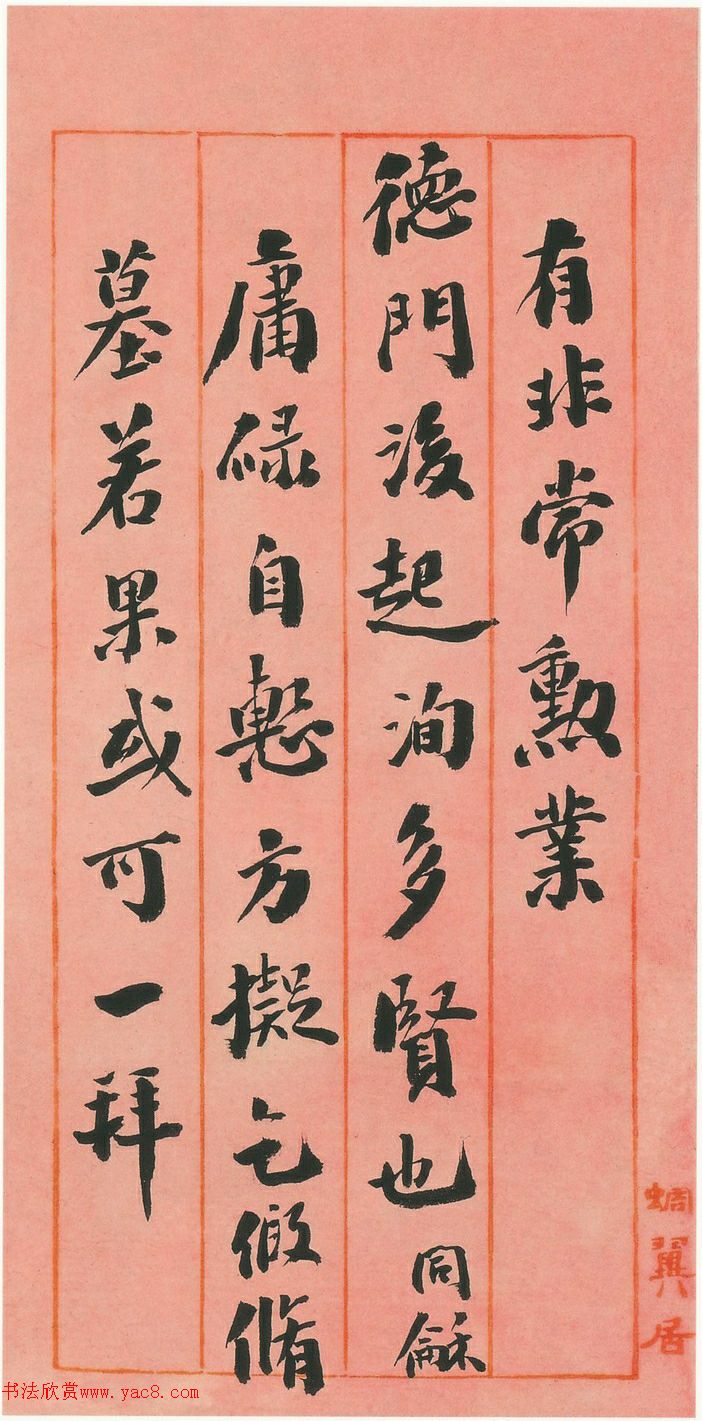 有非常勳業
德門後起洵多賢也同龢
庸碌自慙方擬乞假脩
墓若果或可一拜
蜩翼居
书法欣赏www.yac8.com